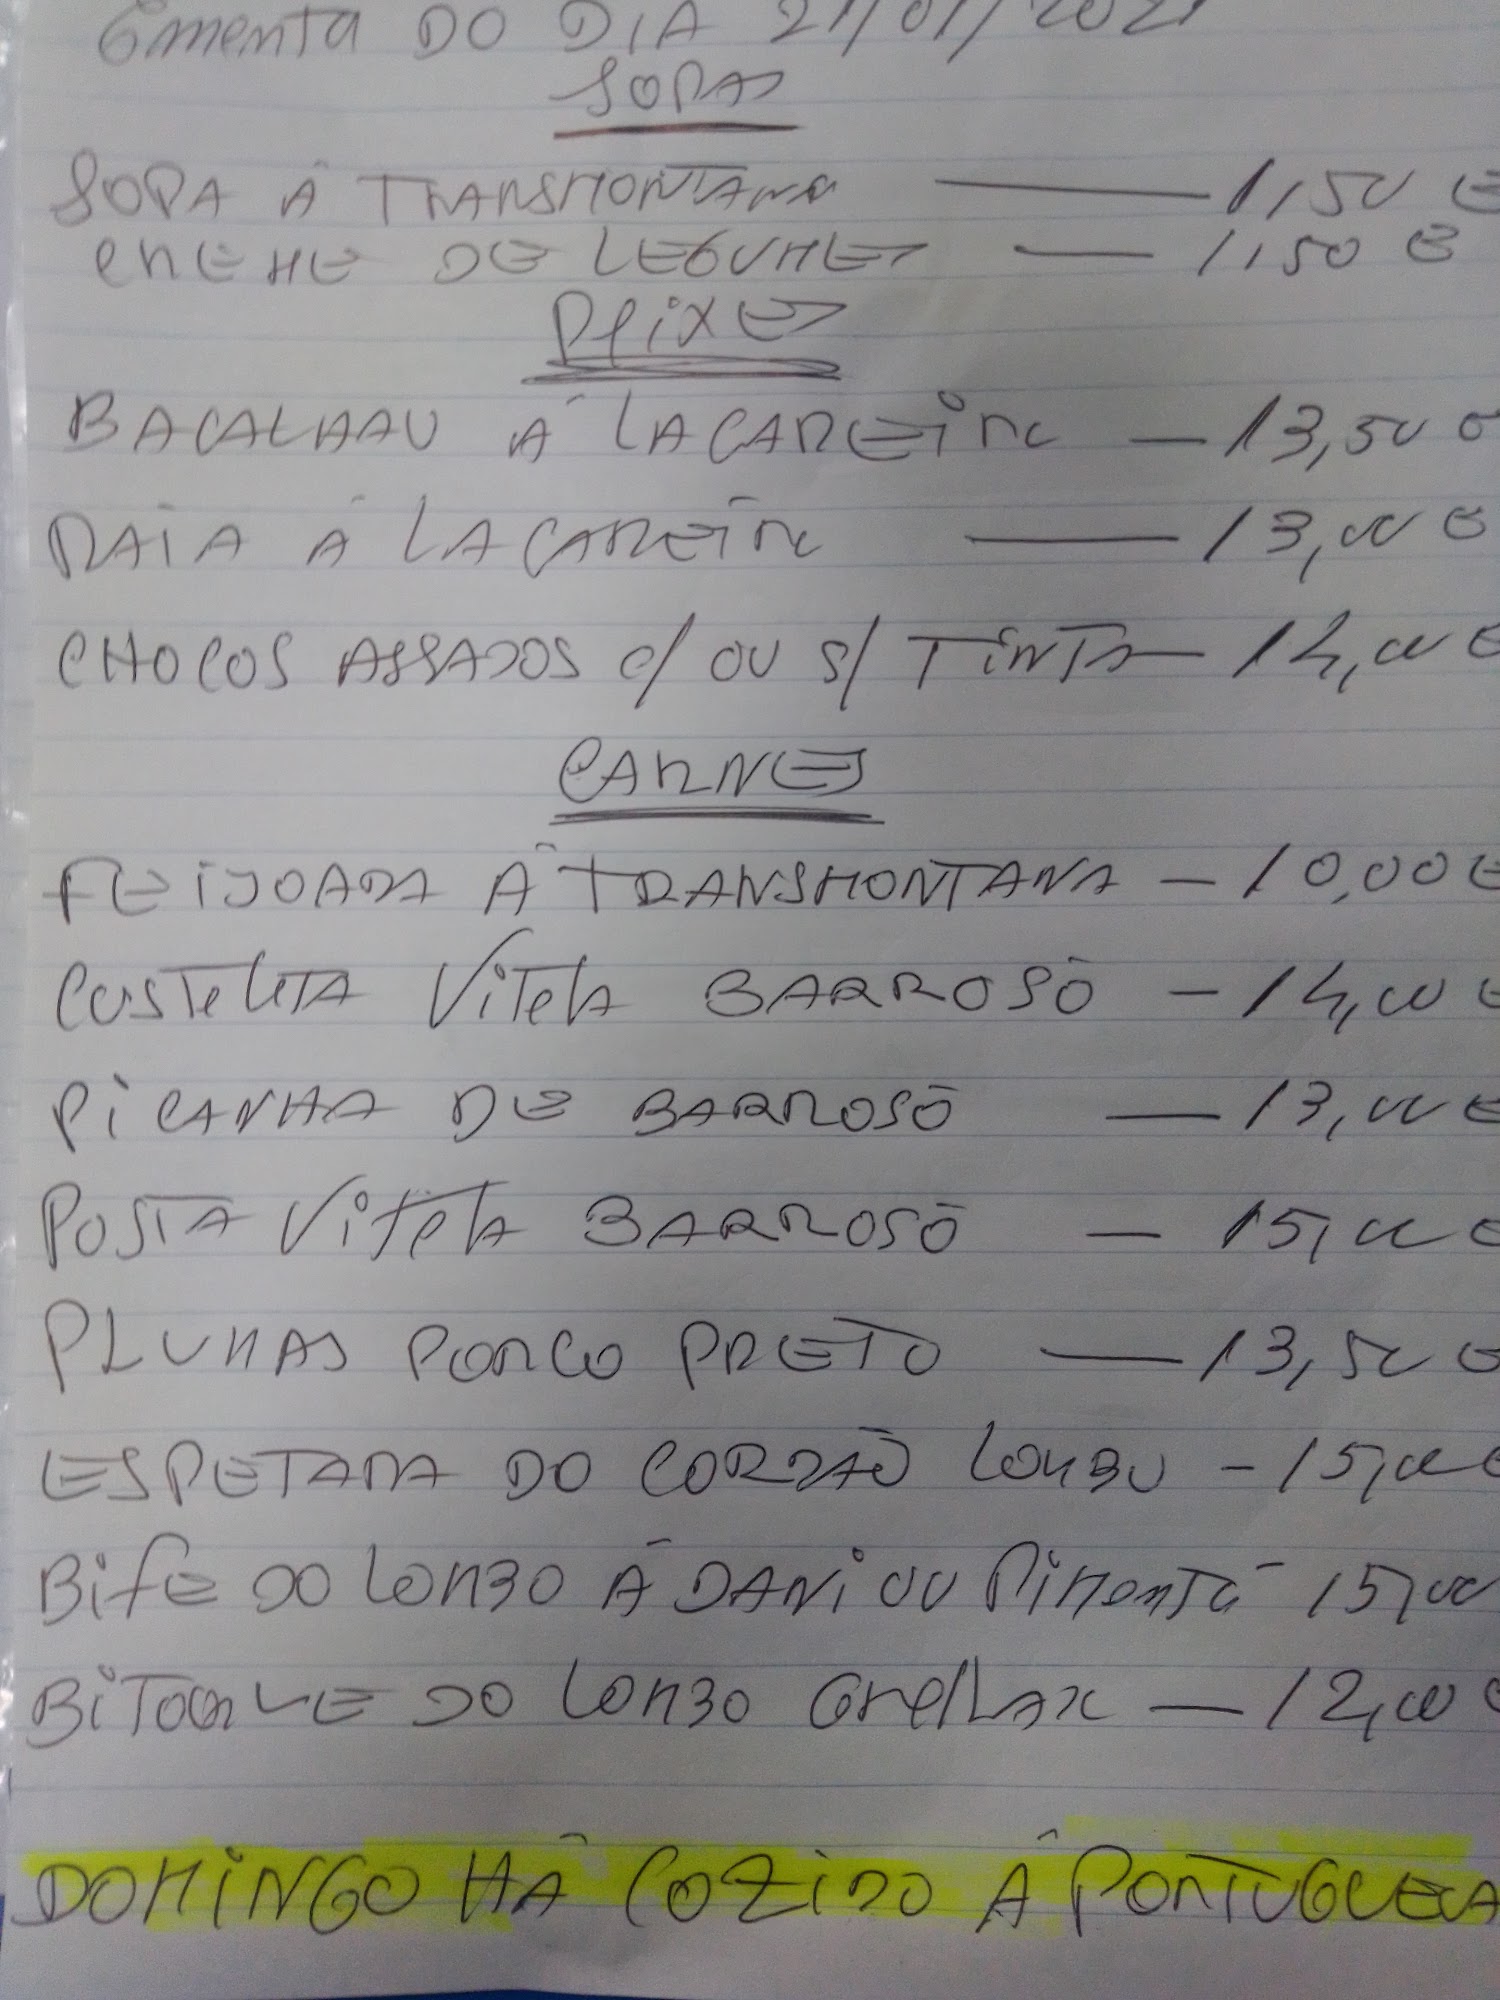 Ementa DO DIA 21/01/2021
SOPAS
SOPA Á TRANSMONTANA — 1,50 €
CREME DE LEGUMES — 1,50 €
PEIXES
BACALHAU Á LAGAREIRO — 13,50 €
RAIA Á LAGAREIRO — 13,00 €
CHOCOS ASSADOS C/ OU S/ TINTA — 14,00 €
CARNES
FEIJOADA Á TRANSMONTANA — 10,00 €
COSTELETA VITELA BARROSÃ — 14,00 €
PICANHA DE BARROSÃ — 13,00 €
POSTA VITELA BARROSÃ — 15,00 €
PLUMAS PORCO PRETO — 13,50 €
ESPETADA DO CORDÃO LOMBO - 15,00 €
BIFE DO LOMBO Á DANI OU PIMENTA - 15,00
BITOQUE DO LOMBO — 12,00 €
DOMINGO HÁ COZIDO Á PORTUGUESA